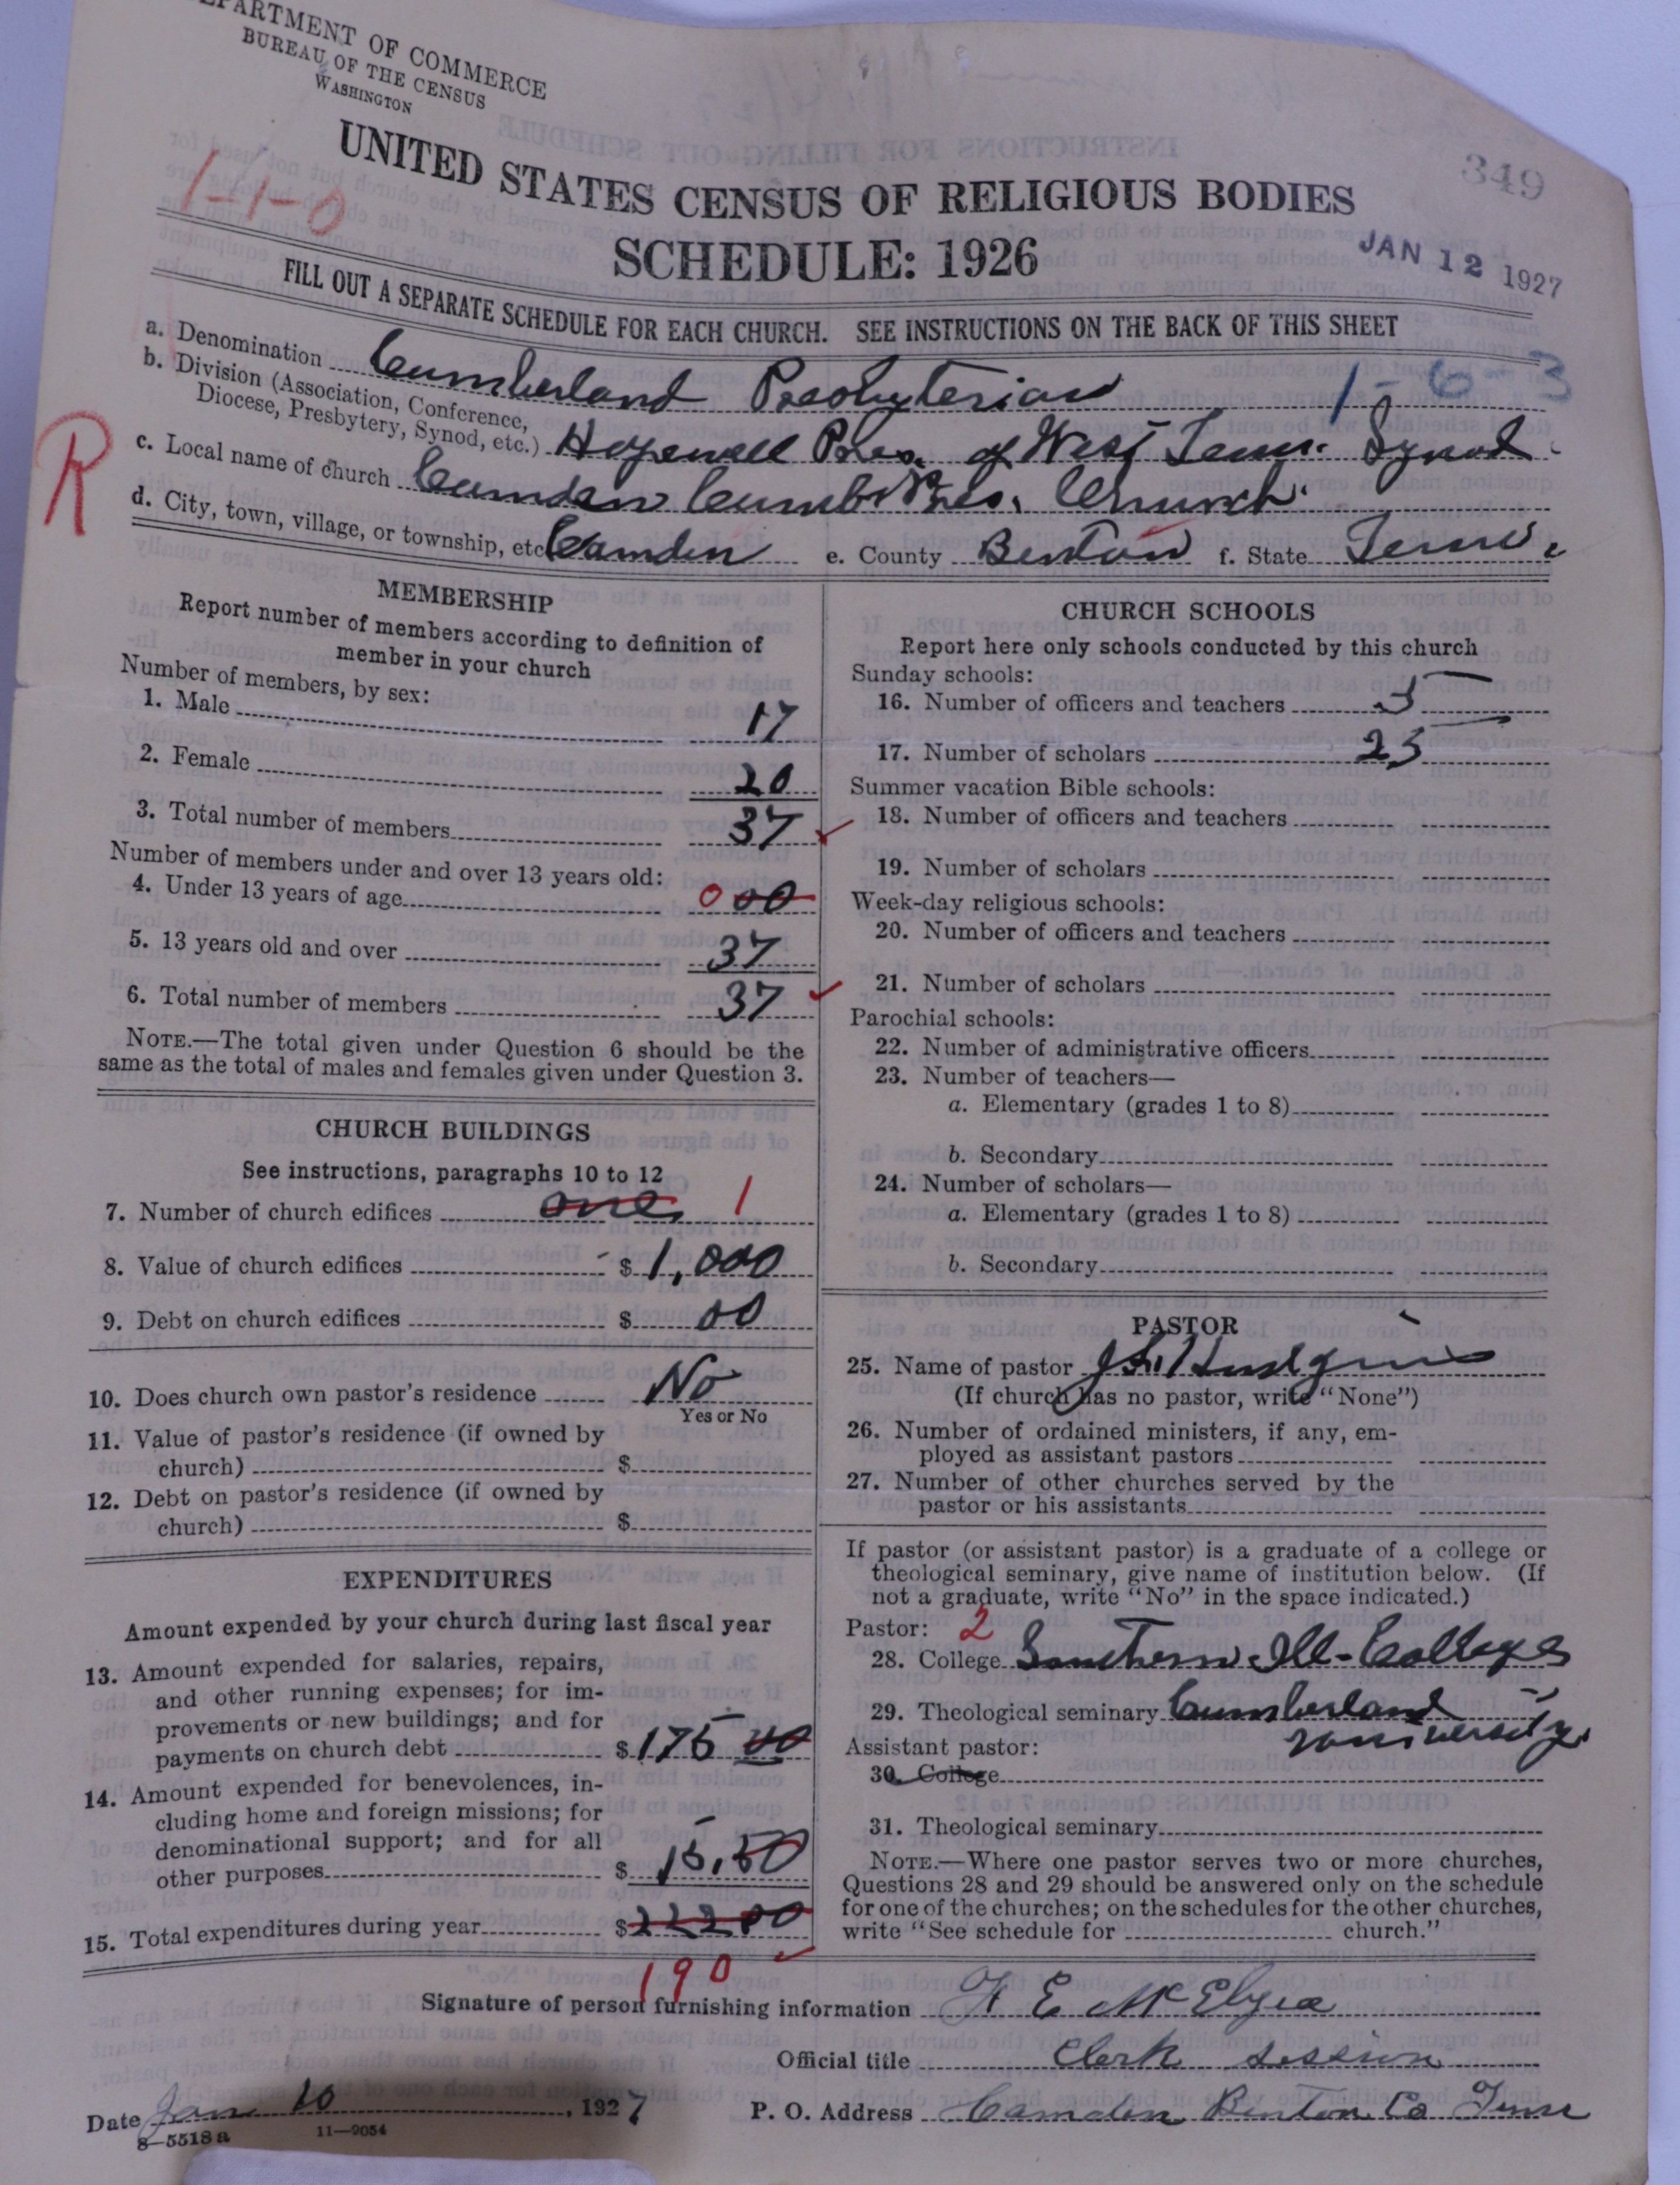 DEPARTMENT OF COMMERCE
BUREAU OF THE CENSUS
WASHINGTON
349
1-1-0
UNITED STATES CENSUS OF RELIGIOUS BODIES
SCHEDULE: 1926
JAN 12 1927
FILL OUT A SEPARATE SCHEDULE FOR EACH CHURCH. SEE INSTRUCTIONS ON THE BACK OF THIS SHEET
a. Denomination Cumberland Presbyterian 1-6 3
b. Division (Association, Conference,
Diocese, Presbytery, Synod, etc.) Hopewell Pres. of West Tenn. Synod
R
c. Local name of church Camden Cumb. Pres. Church
d. City, town, village, or township, etc. Camden e. County Benton f. State Tenn.
MEMBERSHIP
Report number of members according to definition of
member in your church
Number of members, by sex:
1. Male 17
2. Female 20
3. Total number of members 37
Number of members under and over 13 years old:
4. Under 13 years of age 0 00
5. 13 years old and over 37
6. Total number of members 37
NOTE.—The total given under Question 6 should be the
same as the total of males and females given under Question 3.
CHURCH BUILDINGS
See instructions, paragraphs 10 to 12
7. Number of church edifices one 1
8. Value of church edifices $ 1,000
9. Debt on church edifices $ 00
10. Does church own pastor's residence No
Yes or No
11. Value of pastor's residence (if owned by
church) $
12. Debt on pastor's residence (if owned by
church) $
EXPENDITURES
Amount expended by your church during last fiscal year
13. Amount expended for salaries, repairs,
and other running expenses; for im-
provements or new buildings; and for
payments on church debt $ 175 00
14. Amount expended for benevolences, in-
cluding home and foreign missions; for
denominational support; and for all
other purposes $ 15.50
15. Total expenditures during year $
190
CHURCH SCHOOLS
Report here only schools conducted by this church
Sunday schools:
16. Number of officers and teachers 5
17. Number of scholars 25
Summer vacation Bible schools:
18. Number of officers and teachers
19. Number of scholars
Week-day religious schools:
20. Number of officers and teachers
21. Number of scholars
Parochial schools:
22. Number of administrative officers
23. Number of teachers—
a. Elementary (grades 1 to 8)
b. Secondary
24. Number of scholars—
a. Elementary (grades 1 to 8)
b. Secondary
PASTOR
25. Name of pastor Hudgins
(If church has no pastor, write "None")
26. Number of ordained ministers, if any, em-
ployed as assistant pastors
27. Number of other churches served by the
pastor or his assistants
If pastor (or assistant pastor) is a graduate of a college or
theological seminary, give name of institution below. (If
not a graduate, write "No" in the space indicated.)
Pastor: 2
28. College Southern Ill- College
29. Theological seminary Cumberland
University
Assistant pastor:
30. College
31. Theological seminary
NOTE.—Where one pastor serves two or more churches,
Questions 28 and 29 should be answered only on the schedule
for one of the churches; on the schedules for the other churches,
write "See schedule for church."
Signature of person furnishing information E McElyea
Official title Clerk session
Date Jan 10, 1927 P. O. Address Camden Benton Co Tenn
8—5518a 11—9054